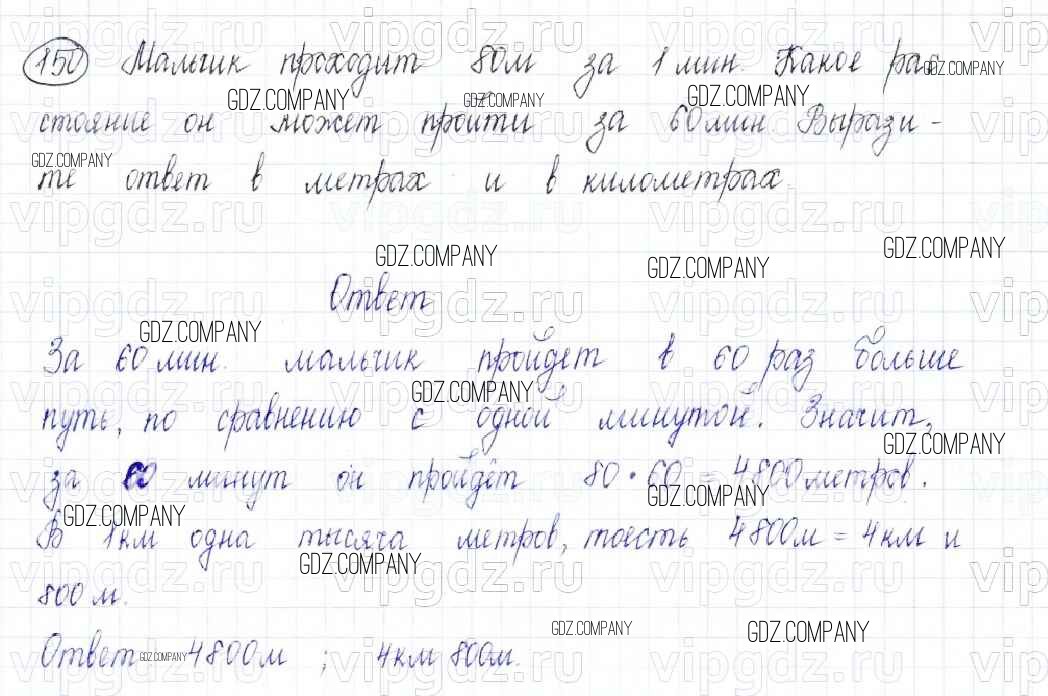 150 Мальчик проходит 80м за 1 мин. Какое рас
стояние он может пройти за 60мин Вырази -
те ответ в метрах и в километрах.
Ответ
За 60 мин. мальчик пройдет в 60 раз больше
путь, по сравнению с одной минутой. Значит,
за 60 минут он пройдёт 80 • 60 = 4800 метров.
В 1км одна тысяча метров, тоесть 4800м = 4км и
800 м.
Ответ 4800м ; 4км 800м.